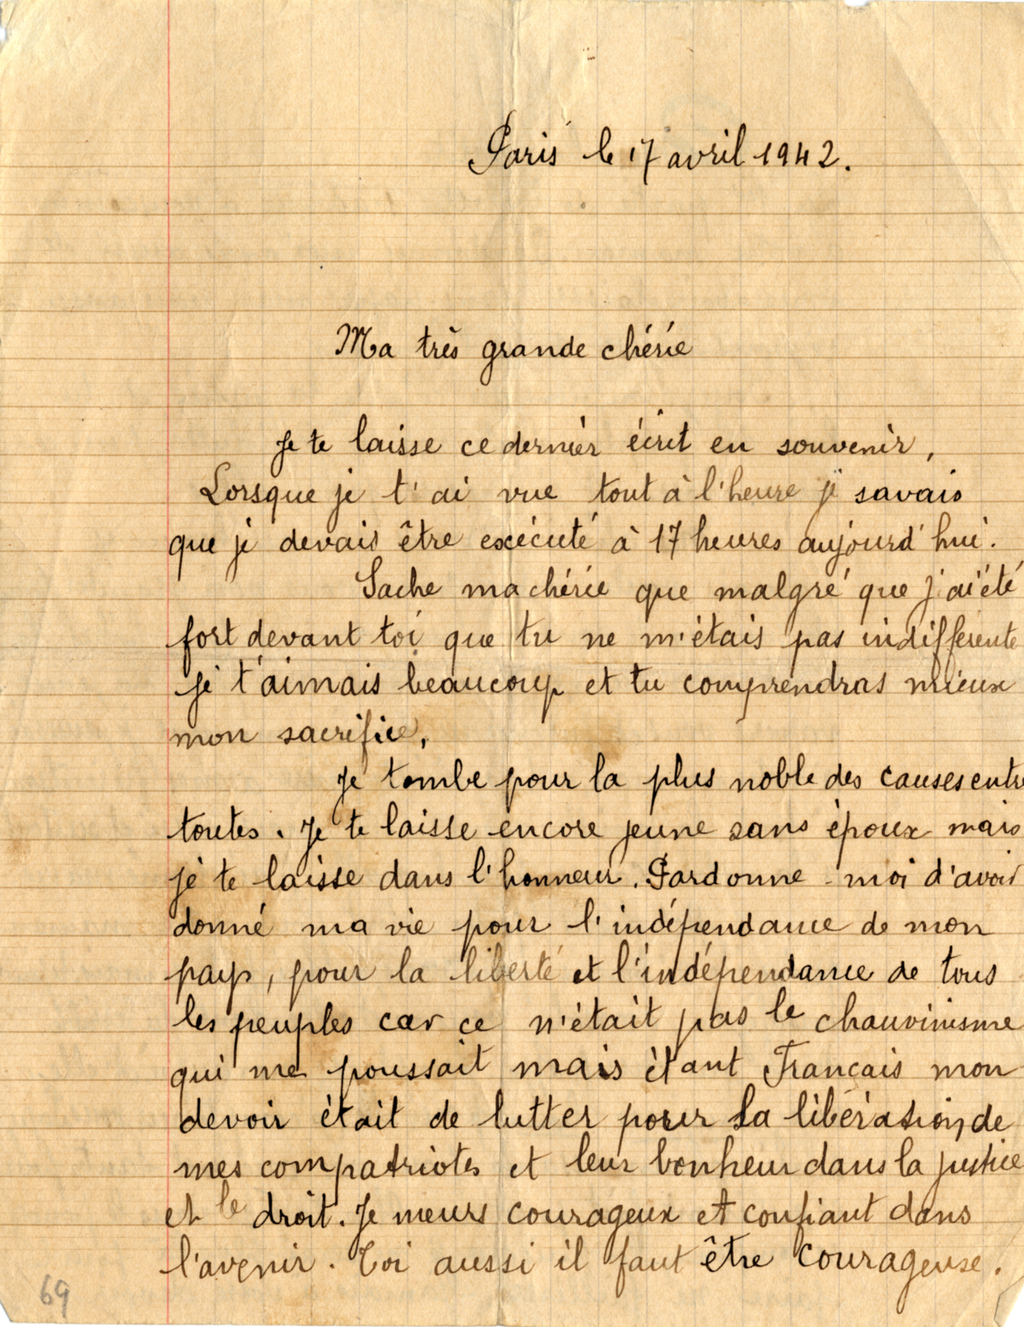 Paris le 17 avril 1942.
Ma très grande chérie
Je te laisse ce dernier écrit en souvenir,
Lorsque je t'ai vue tout à l'heure je savais
que je devais être exécuté à 17 heures aujourd'hui.
Sache ma chérie que malgré que j'ai été
fort devant toi que tu ne m'étais pas indifférente
je t'aimais beaucoup et tu comprendras mieux
mon sacrifice,
Je tombe pour la plus noble des causes entre
toutes. Je te laisse encore jeune sans époux mais
je te laisse dans l'honneur. Pardonne-moi d'avoir
donné ma vie pour l'indépendance de mon
pays, pour la liberté et l'indépendance de tous
les peuples car ce n'était pas le chauvinisme
qui me poussait mais étant Français mon
devoir était de lutter pour la libération de
mes compatriotes et leur bonheur dans la justice
et le droit. Je meurs courageux et confiant dans
l'avenir. Toi aussi il faut être courageuse.
69